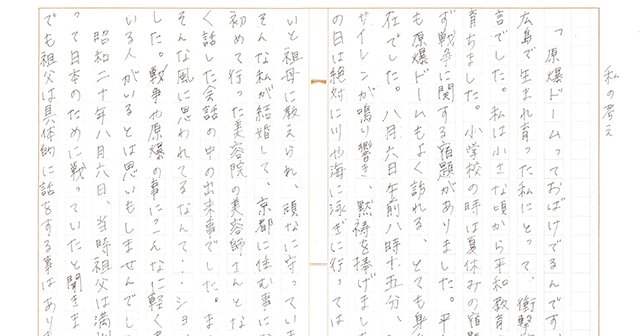 私の考え
「原爆ドームっておばけでるんです
広島で生まれ育った私にとって、衝撃
言でした。私は小さな頃から平和教育
育ちました。小学校の時は夏休みの宿題
ず戦争に関する宿題がありました。平
も原爆ドームもよく訪れる、とても身
在でした。八月六日午前八時十五分、
サイレンが鳴り響き、黙祷を捧げまし
の日は絶対に川や海に泳ぎに行っては
いと祖母に教えられ、頑なに守ってい
そんな私が結婚して、京都に住む事に
初めて行った美容院の美容師さんとな
く話した会話の中の出来事でした。ま
そんな風に思われてるなんて…ショ
した。戦争や原爆の事にこんなに軽く
いる人がいるとは思いもしませんでし
昭和二十年八月六日、当時祖父は満
って日本のために戦っていたと聞きま
でも祖父は具体的に話をする事はあり